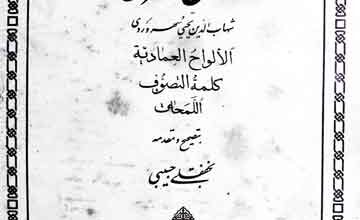 شهاب الدین یحیی سهروردی
الألواح العمادیة
كلمة التصوّف
اللمحات
بتصحیح و مقدمه
نجفقلی حبیبی